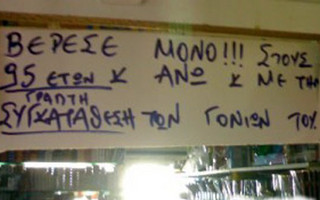 ΒΕΡΕΣΕ ΜΟΝΟ!!! ΣΤΟΥΣ
95 ΕΤΩΝ & ΑΝΩ & ΜΕ ΤΗΝ
ΓΡΑΠΤΗ
ΣΥΓΚΑΤΑΘΕΣΗ ΤΩΝ ΓΟΝΙΩΝ ΤΟΥ.